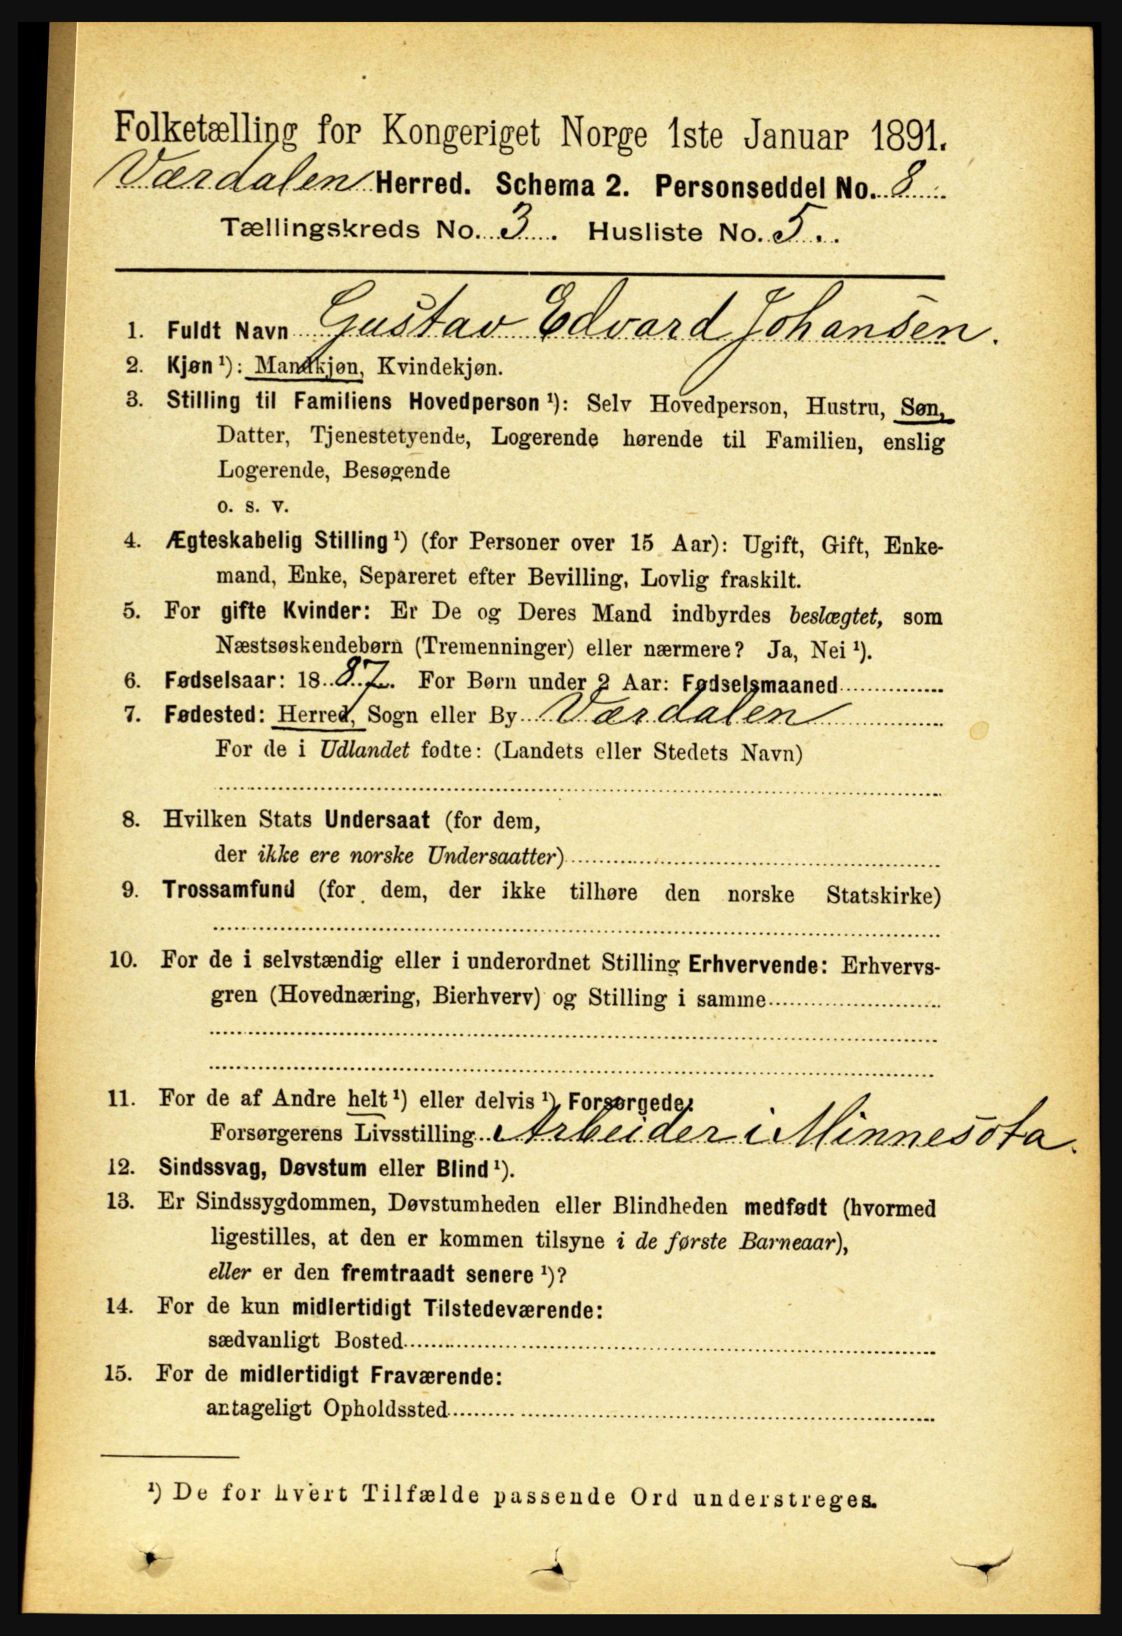 Folketælling for Kongeriget Norge 1ste Januar 1891.
Værdalen Herred. Schema 2. Personseddel No. 8
Tællingskreds No. 3. Husliste No. 5.
1. Fuldt Navn Gustav Edvard Johansen.
2. Kjøn ¹): Mandkjøn, Kvindekjøn.
3. Stilling til Familiens Hovedperson ¹): Selv Hovedperson, Hustru, Søn,
Datter, Tjenestetyende, Logerende hørende til Familien, enslig
Logerende, Besøgende
o. s. v.
4. Ægteskabelig Stilling ¹) (for Personer over 15 Aar): Ugift, Gift, Enke-
mand, Enke, Separeret efter Bevilling, Lovlig fraskilt.
5. For gifte Kvinder: Er De og Deres Mand indbyrdes beslægtet, som
Næstsøskendebørn (Tremenninger) eller nærmere? Ja, Nei ¹).
6. Fødselsaar: 1887. For Børn under 2 Aar: Fødselsmaaned
7. Fødested: Herred, Sogn eller By Værdalen
For de i Udlandet fødte: (Landets eller Stedets Navn)
8. Hvilken Stats Undersaat (for dem,
der ikke ere norske Undersaatter)
9. Trossamfund (for dem, der ikke tilhøre den norske Statskirke)
10. For de i selvstændig eller i underordnet Stilling Erhvervende: Erhvervs-
gren (Hovednæring, Bierhverv) og Stilling i samme
11. For de af Andre helt ¹) eller delvis ¹) Forsørgede:
Forsørgerens Livsstilling Arbeider i Minnesota.
12. Sindssvag, Døvstum eller Blind ¹).
13. Er Sindssygdommen, Døvstumheden eller Blindheden medfødt (hvormed
ligestilles, at den er kommen tilsyne i de første Barneaar),
eller er den fremtraadt senere ¹)?
14. For de kun midlertidigt Tilstedeværende:
sædvanligt Bosted
15. For de midlertidigt Fraværende:
antageligt Opholdssted
¹) De for hvert Tilfælde passende Ord understreges.